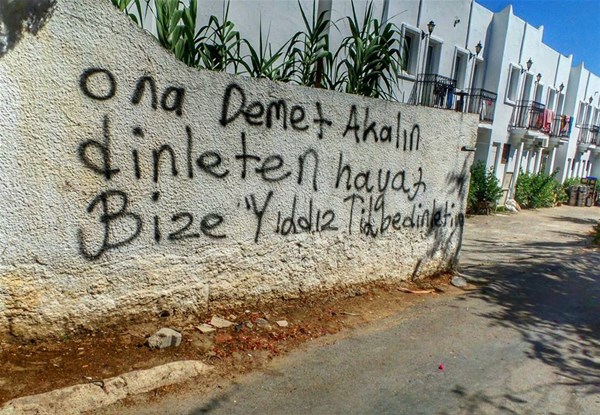 ona Demet Akalın
dinleten hayat
Bize "Yıddız Tilbe dinletir